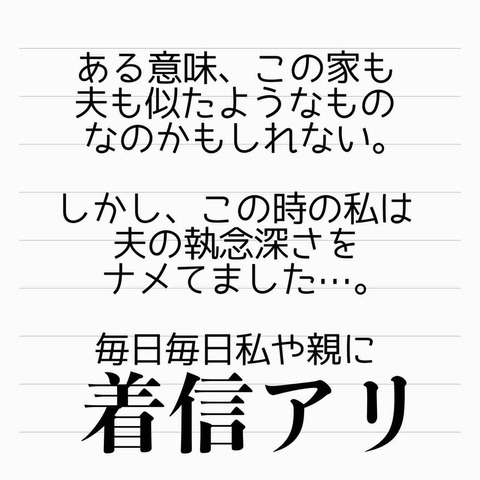 ある意味、この家も
夫も似たようなもの
なのかもしれない。
しかし、この時の私は
夫の執念深さを
ナメてました…。
毎日毎日私や親に
着信アリ